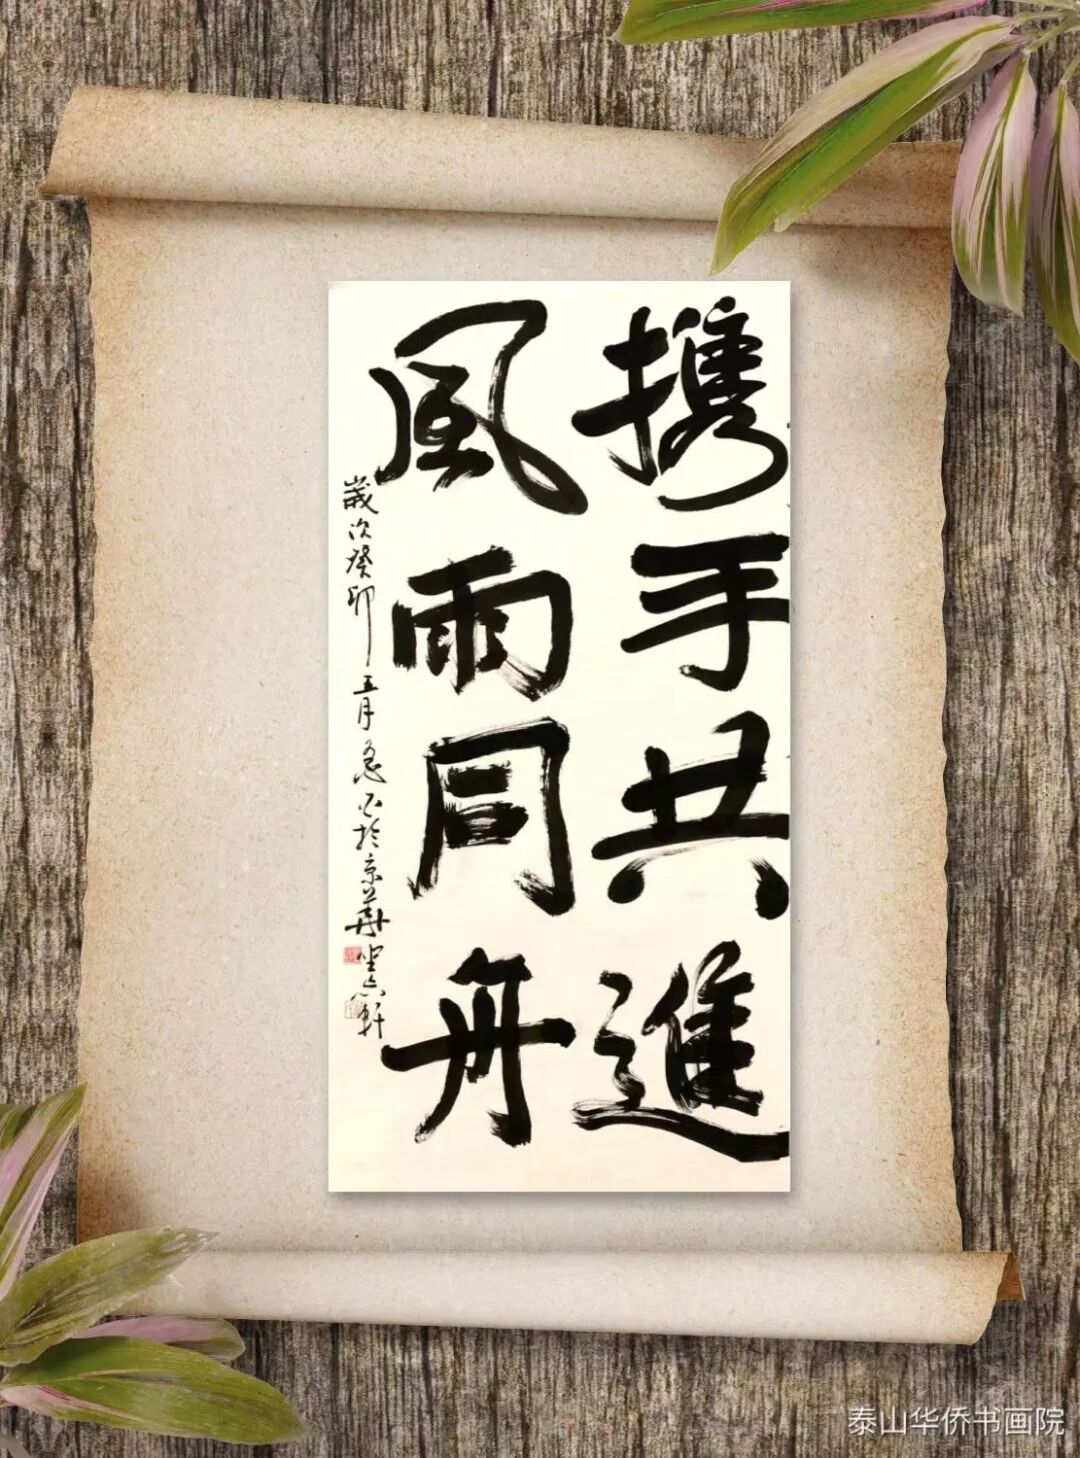 携手共進
風雨同舟
歲次癸卯五月
於京華
軒
泰山华侨书画院